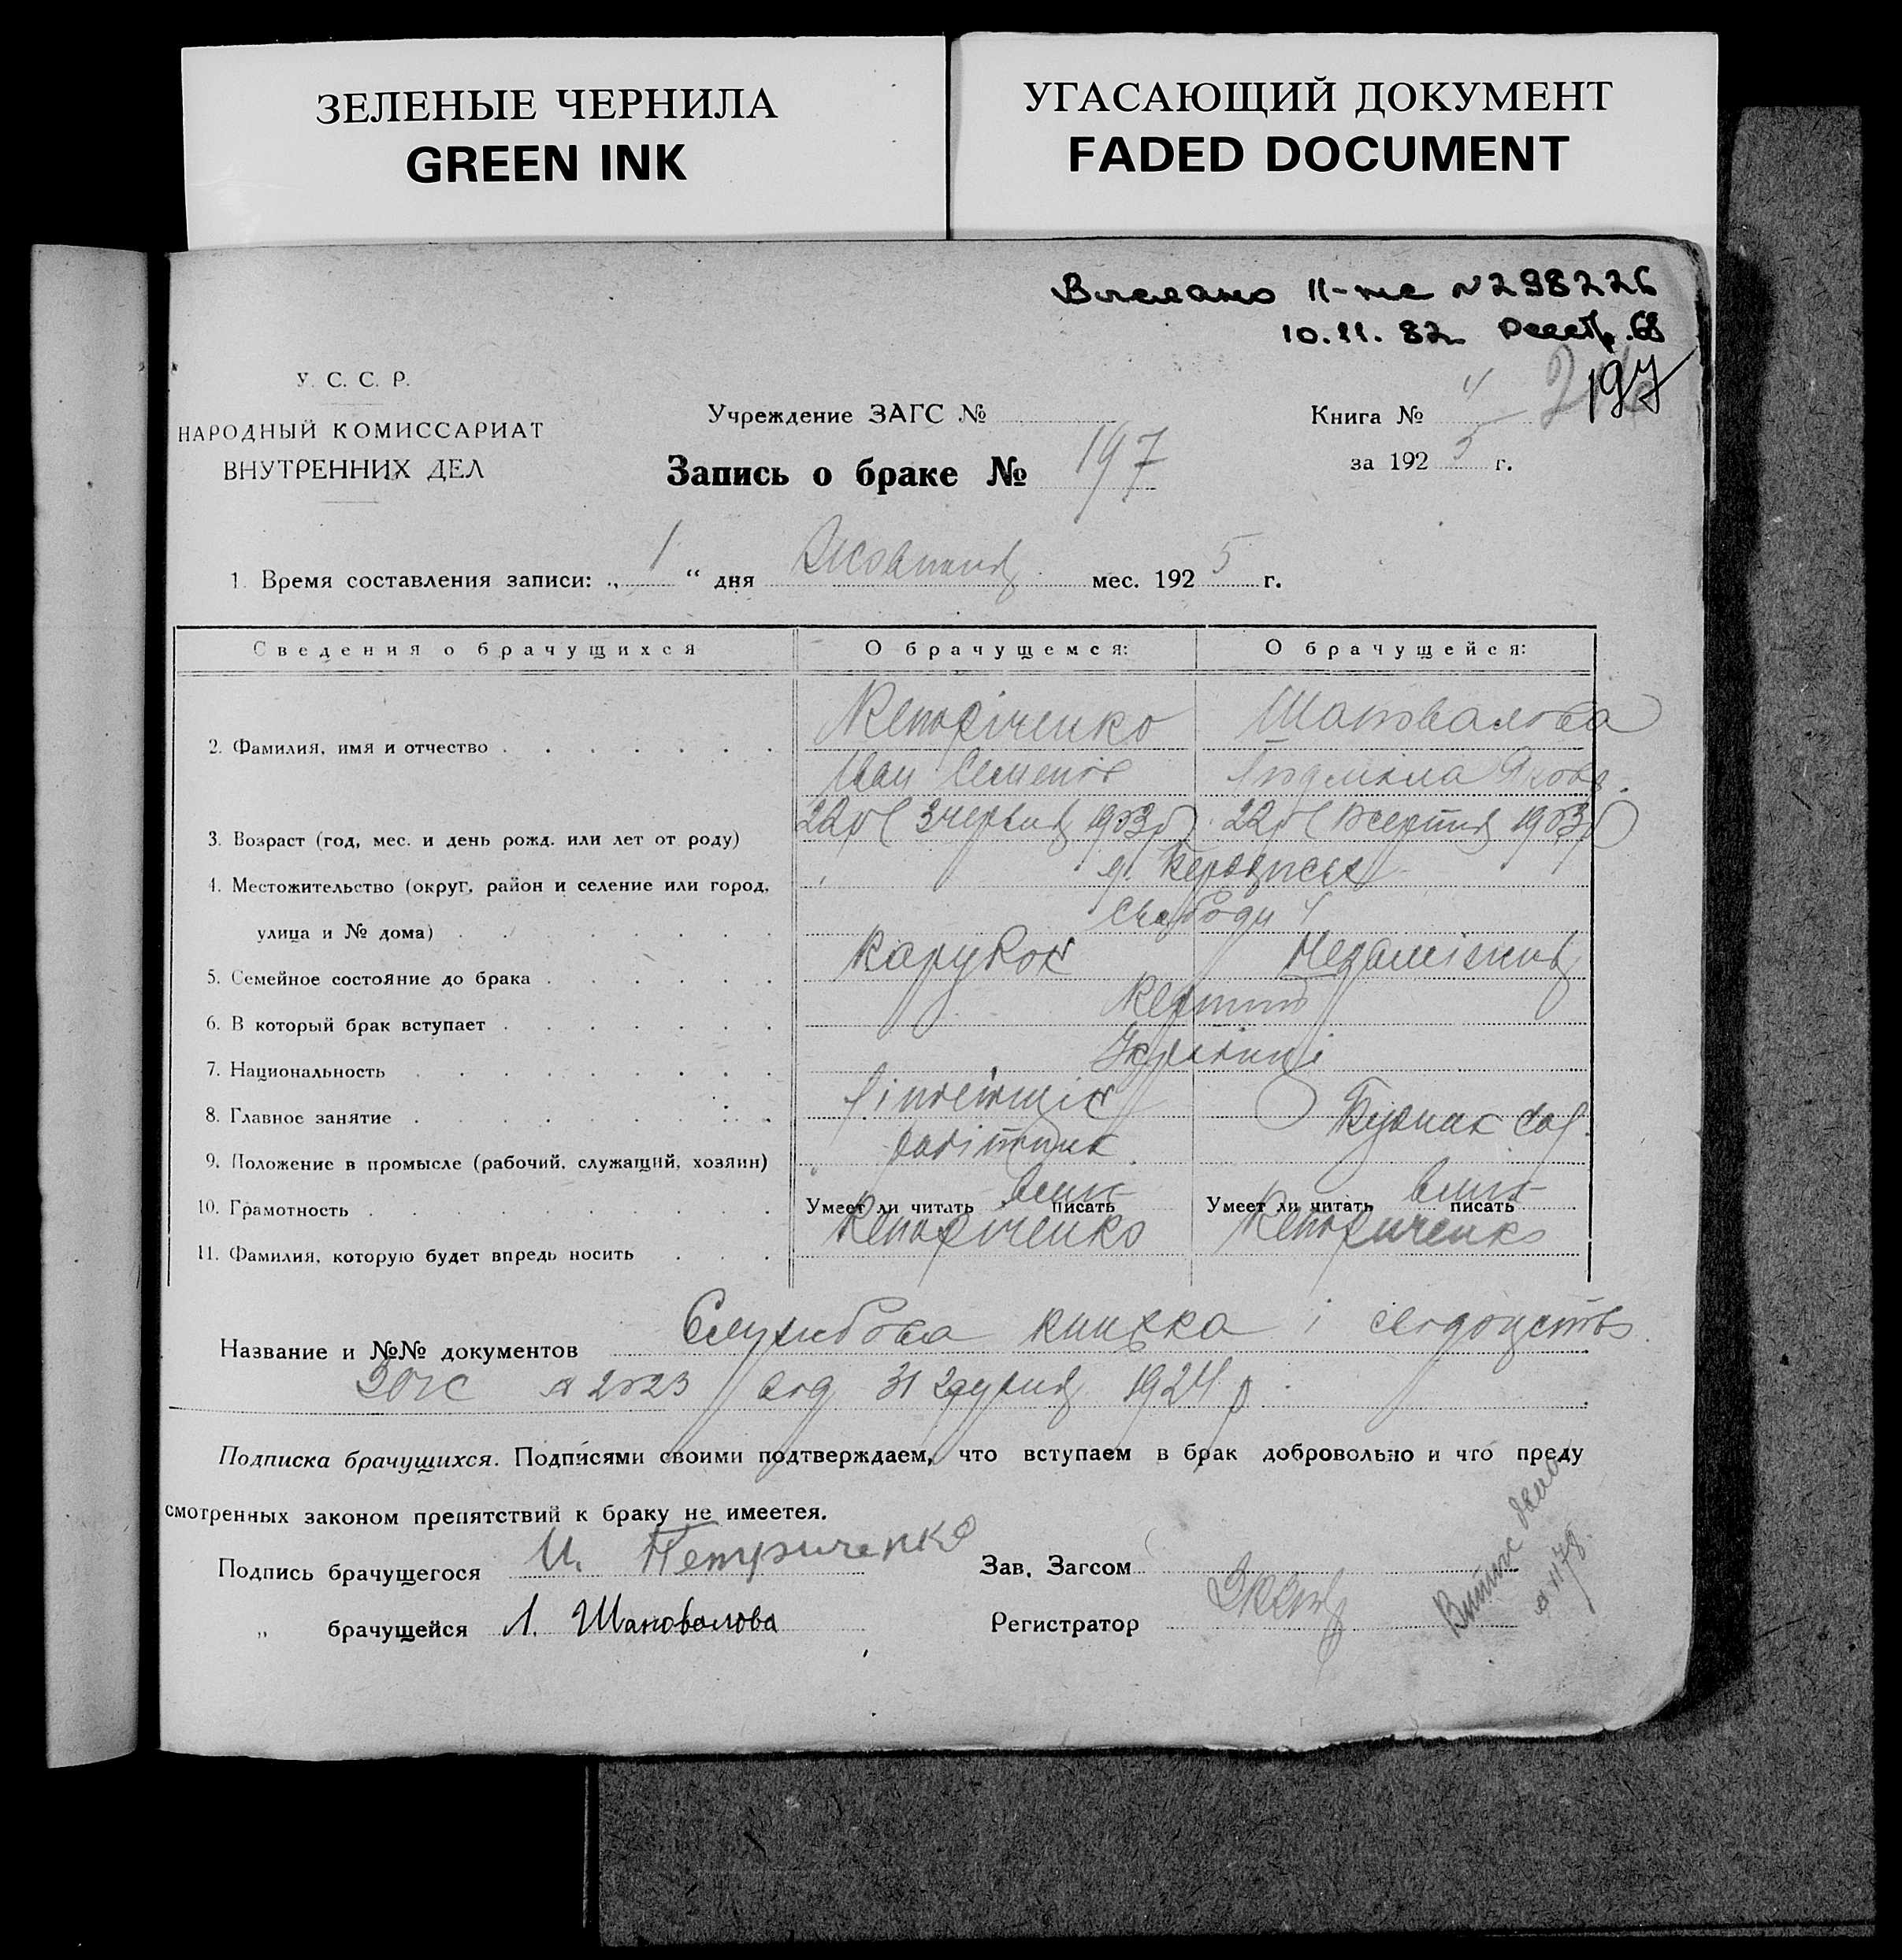 ЗЕЛЕНЫЕ ЧЕРНИЛА
GREEN INK
УГАСАЮЩИЙ ДОКУМЕНТ
FADED DOCUMENT
Выслано II-ое №298226
10.11.82 Реестр.68
197
У. С. С. Р.
НАРОДНЫЙ КОМИССАРИАТ
ВНУТРЕННИХ ДЕЛ
Учреждение ЗАГС №
Книга № 4
Запись о браке № 197
за 1925 г.
1. Время составления записи: „ 1 “ дня Жовтня мес. 1925 г.
Сведения о брачущихся О брачущемся: О брачущейся:
2. Фамилия, имя и отчество Петріченко Шаповалова
Іван Семенів Людміла Яковл.
3. Возраст (год, мес. и день рожд. или лет от роду) 22р 3 червня 1903р. 22р Жовтня 1903р
4. Местожительство (округ, район и селение или город,
улица и № дома) Свободи 4
5. Семейное состояние до брака Парубок Незаміжня
6. В который брак вступает Перший
7. Национальность Українці
8. Главное занятие
9. Положение в промысле (рабочий, служащий, хозяин) робітник
10. Грамотность Умеет ли читать писать Умеет ли читать писать
11. Фамилия, которую будет впредь носить Петріченко Петриченко
Название и №№ документов Службова книжка і свідоцтво
ЗАГС № 2023 від 31 грудня 1924 р.
Подписка брачущихся. Подписями своими подтверждаем, что вступаем в брак добровольно и что преду
смотренных законом препятствий к браку не имеется.
Подпись брачущегося И. Петриченко
Зав. Загсом
„ брачущейся Л. Шаповалова
Регистратор
№ 1178.